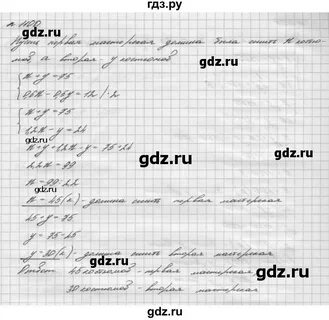 гдз.ру
№ 1100
Пусть первая мастерская должна была сшить x костю-
мов, а вторая y костюмов
x + y = 75
0,6x - 0,5y = 12 | · 2
x + y = 75
1,2x - y = 24
gdz.ru
x + y + 1,2x - y = 75 + 24
2,2x = 99
x = 99 : 2,2
gdz.ru
x = 45 (к) - должна сшить первая мастерская
45 + y = 75
y = 75 - 45
gdz.ru
y = 30 (к) - должна сшить вторая мастерская
Ответ 45 костюмов - первая мастерская
30 костюмов - вторая мастерская
gdz.ru